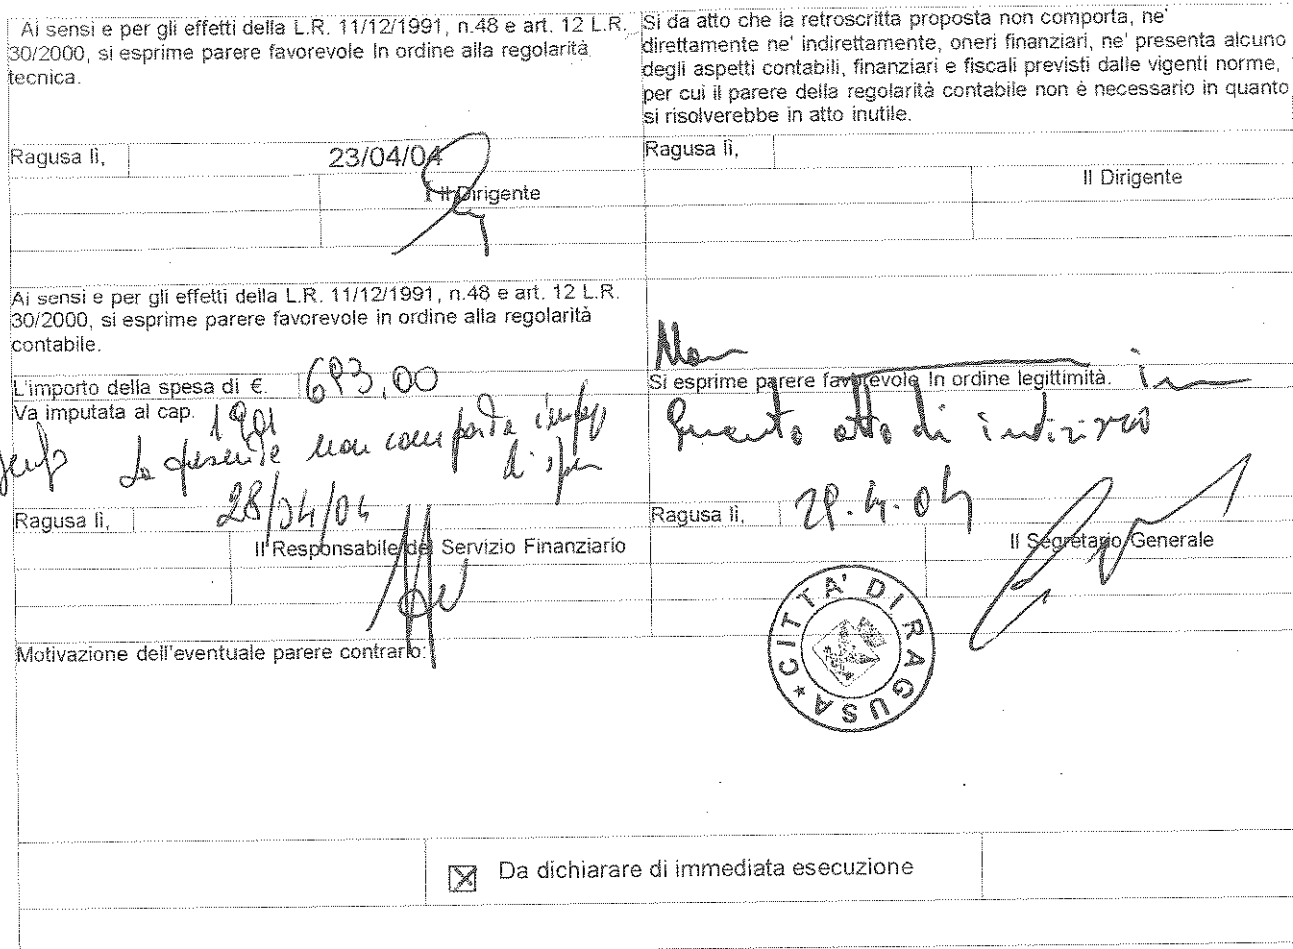 Ai sensi e per gli effetti della L.R. 11/12/1991, n.48 e art. 12 L.R.
30/2000, si esprime parere favorevole In ordine alla regolarità
tecnica.
Ragusa lì, 23/04/04
Il Dirigente
Si da atto che la retroscritta proposta non comporta, ne'
direttamente ne' indirettamente, oneri finanziari, ne' presenta alcuno
degli aspetti contabili, finanziari e fiscali previsti dalle vigenti norme,
per cui il parere della regolarità contabile non è necessario in quanto
si risolverebbe in atto inutile.
Ragusa lì,
Il Dirigente
Ai sensi e per gli effetti della L.R. 11/12/1991, n.48 e art. 12 L.R.
30/2000, si esprime parere favorevole In ordine alla regolarità
contabile.
L'importo della spesa di €. 693,00
Va imputata al cap. 1901
La presente non comporta
di
Ragusa lì, 28/04/04
Il Responsabile del Servizio Finanziario
Non
Si esprime parere favorevole In ordine legittimità. in
quanto atto di indirizzo
Ragusa lì, 29.4.04
Il Segretario Generale
CITTA' DI RAGUSA
Motivazione dell'eventuale parere contrario:
Da dichiarare di immediata esecuzione